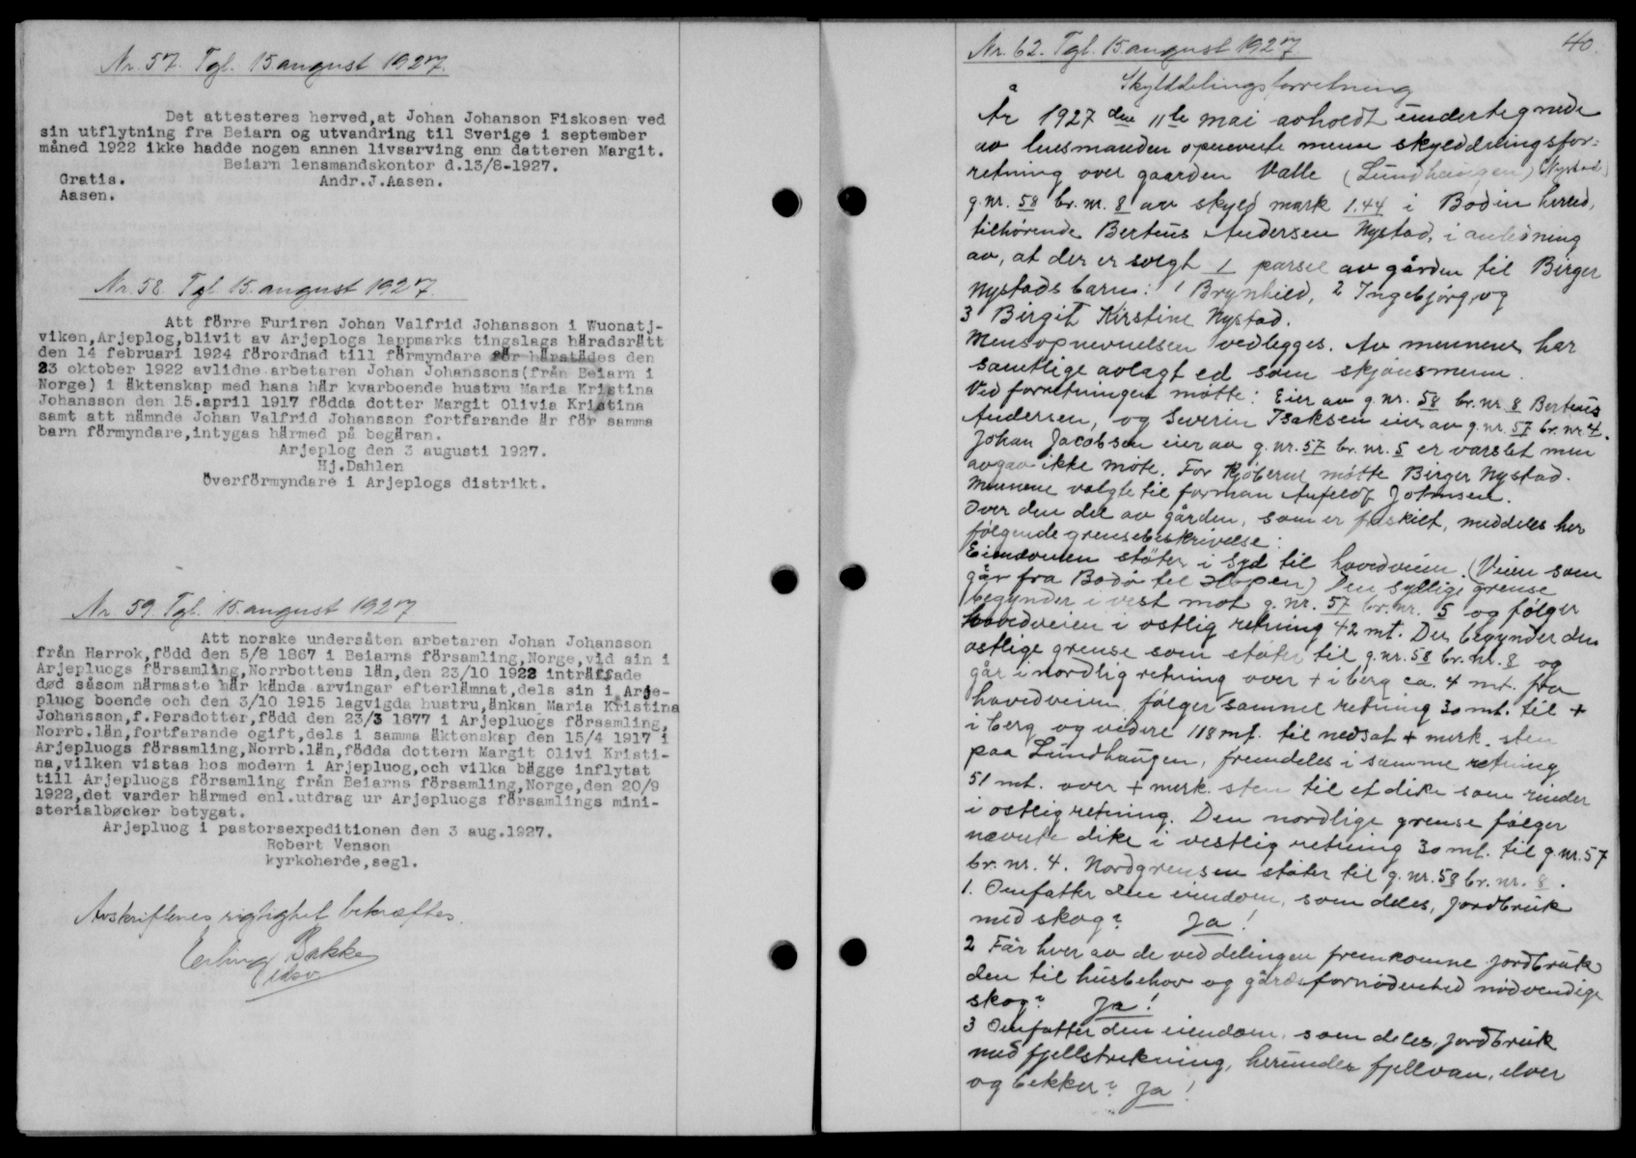 Nr. 57. Tgl. 15 august 1927.
Det attesteres herved,at Johan Johanson Fiskosen ved
sin utflytning fra Beiarn og utvandring til Sverige i september
måned 1922 ikke hadde nogen annen livsarving enn datteren Margit.
Beiarn lensmandskontor d.13/8-1927.
Gratis.
Andr.J.Aasen.
Aasen.
Nr. 58. Tgl. 15. august 1927
Att förre Furiren Johan Valfrid Johansson i Wuonatj-
viken,Arjeplog,blivit av Arjeplogs lappmarks tingslags häradsrätt
den 14 februari 1924 förordnad till förmyndare för härstädes den
23 oktober 1922 avlidne arbetaren Johan Johanssons(från Beiarn i
Norge) i äktenskap med hans här kvarboende hustru Maria Kristina
Johansson den 15.april 1917 födda dotter Margit Olivia Kristina
samt att nämnde Johan Valfrid Johansson fortfarande är för samma
barn förmyndare,intygas härmed på begäran.
Arjeplog den 3 augusti 1927.
Hj.Dahlen
Överförmyndare i Arjeplogs distrikt.
Nr. 59 Tgl. 15. august 1927
Att norske undersåten arbetaren Johan Johansson
från Harrok,född den 5/8 1867 i Beiarns församling,Norge,vid sin i
Arjepluogs församling,Norrbottens län,den 23/10 1922 inträffade
død såsom närmaste här kända arvingar efterlämnat,dels sin i Arje-
pluog boende och den 3/10 1915 lagvigda hustru,änkan Maria Kristina
Johansson,f.Persdotter,född den 23/3 1877 i Arjepluogs församling,
Norrb.län,fortfarande ogift,dels i samma äktenskap den 15/4 1917 i
Arjepluogs församling,Norrb.län,födda dottern Margit Olivi Kristi-
na,vilken vistas hos modern i Arjepluog,och vilka bägge inflytat
till Arjepluogs församling från Beiarns församling,Norge,den 20/9
1922,det varder härmed enl.utdrag ur Arjepluogs församlings mini-
sterialbøcker betygat.
Arjepluog i pastorsexpeditionen den 3 aug.1927.
Robert Venson
kyrkoherde,segl.
Avskriftenes rigtighet bekræftes.
Erling Bakke
40.
Nr. 62. Tgl. 15 august 1927
Skylddelingsforretning
År 1927 den 11te mai avholdt undertegnede
av lensmanden opnevnte menn skylddelingsfor-
retning over gaarden Valle (Lundhaugen) (Nystad)
g.nr. 58 br.nr. 8 av skyld mark 1.44 i Bodin herred,
tilhørende Berteus Andersen Nystad, i anledning
av, at der er solgt 1 parsel av gården til Birger
Nystads barn: 1 Brynhild, 2 Ingebjørg, og
3 Birgit Kirstine Nystad.
Mensopnevnelsen vedlegges. Av mennene har
samtlige avlagt ed som skjønsmenn.
Ved forretningen møtte: Eier av g.nr. 58 br.nr 8 Berteus
Andersen, og Severin Isaksen eier av g.nr. 57 br.nr. 4.
Johan Jacobsen eier av g.nr. 57 br.nr. 5 er varslet men
avgav ikke møte. For kjøberne møtte Birger Nystad.
Mennene valgte til forman Anfeldt Johnsen.
Over den del av gården, som er fraskilt, meddeles her
følgende grensebeskrivelse:
Eiendommen støter i Syd til hovedveien. (Veien som
går fra Bodø til Hopen) Den sydlige grense
begynder i vest mot g.nr. 57 br.nr. 5 og følger
hovedveien i østlig retning 42 mt. Der begynder den
østlige grense som støter til g.nr. 58 br.nr. 8 og
går i nordlig retning over + i berg ca. 4 mt. fra
hovedveien, følger samme retning 30 mt. til +
i berg og videre 118 mt. til nedsat + merk. sten
paa Lundhaugen, fremdeles i samme retning
51 mt. over + merk. sten til et dike som rinder
i østlig retning. Den nordlige grense følger
nævnte dike i vestlig retning 30 mt. til g.nr. 57
br.nr. 4. Nordgrensen støter til g.nr. 58 br.nr. 8.
1. Omfatter den eiendom, som deles, jordbruk
med skog? Ja!
2 Får hver av de ved delingen fremkomne jordbruk
den til husbehov og gårdsfornødenhed nødvendige
skog? Ja!
3 Omfatter den eiendom, som deles, jordbruk
med fjellstrekning, herunder fjellvan, elver
og bekker? Ja!